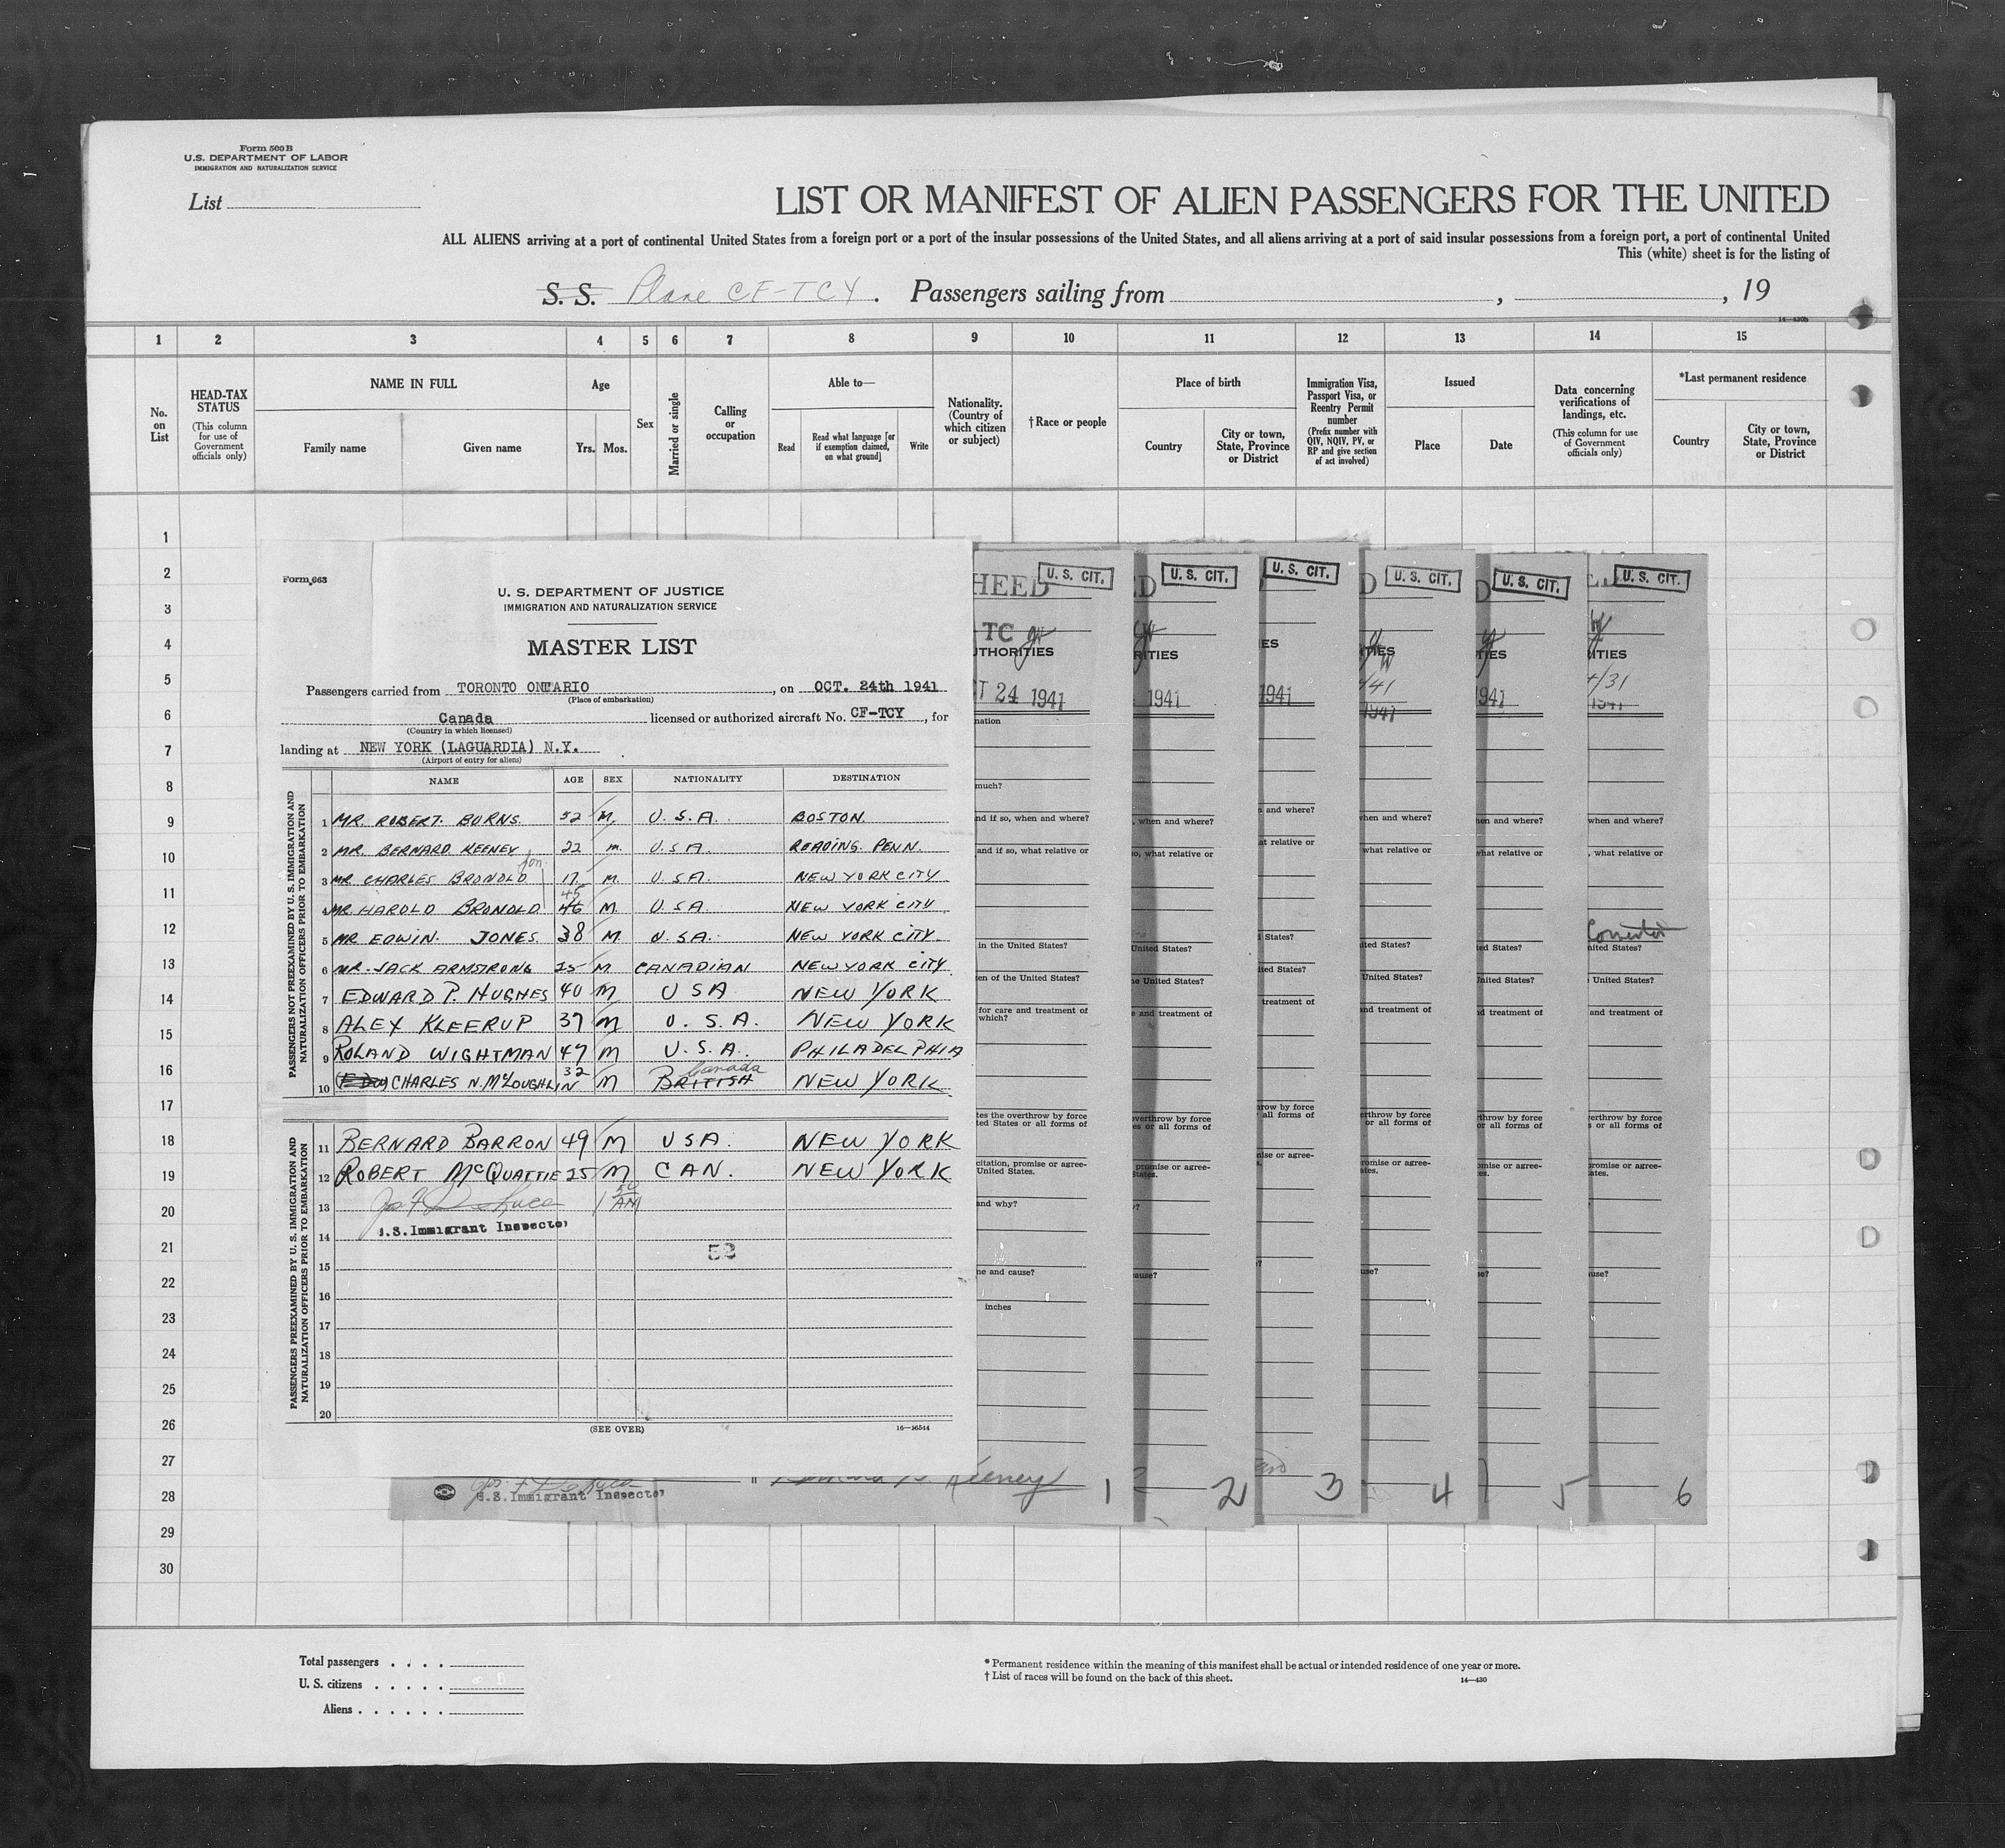 Form 500 B
U.S. DEPARTMENT OF LABOR
IMMIGRATION AND NATURALIZATION SERVICE
List
LIST OR MANIFEST OF ALIEN PASSENGERS FOR THE UNITED
ALL ALIENS arriving at a port of continental United States from a foreign port or a port of the insular possessions of the United States, and all aliens arriving at a port of said insular possessions from a foreign port, a port of continental United
This (white) sheet is for the listing of
S. S. Plane CF-TCY. Passengers sailing from , , 19
14—430b
1 2 3 4 5 6 7 8 9 10 11 12 13 14 15
No. on List
HEAD-TAX STATUS (This column for use of Government officials only)
NAME IN FULL
Family name Given name
Age
Yrs. Mos.
Sex
Married or single
Calling or occupation
Able to—
Read Read what language [or if exemption claimed, on what ground] Write
Nationality. (Country of which citizen or subject)
† Race or people
Place of birth
Country City or town, State, Province or District
Immigration Visa, Passport Visa, or Reentry Permit number (Prefix number with QIV, NQIV, PV, or RP and give section of act involved)
Issued
Place Date
Data concerning verifications of landings, etc. (This column for use of Government officials only)
*Last permanent residence
Country City or town, State, Province or District
1
2
3
4
5
6
7
8
9
10
11
12
13
14
15
16
17
18
19
20
21
22
23
24
25
26
27
28
29
30
Form 663
U. S. DEPARTMENT OF JUSTICE
IMMIGRATION AND NATURALIZATION SERVICE
MASTER LIST
Passengers carried from TORONTO ONTARIO, on OCT. 24th 1941
(Place of embarkation)
Canada licensed or authorized aircraft No. CF-TCY, for
(Country in which licensed)
landing at NEW YORK (LAGUARDIA) N.Y.
(Airport of entry for aliens)
NAME AGE SEX NATIONALITY DESTINATION
PASSENGERS NOT PREEXAMINED BY U. S. IMMIGRATION AND NATURALIZATION OFFICERS PRIOR TO EMBARKATION
1 MR ROBERT. BURNS 52 M. U.S.A. BOSTON.
2 MR. BERNARD KEENEY 22 m. U.S.A READING. PENN.
3 MR CHARLES BRONOLD 17. M. U SA. NEW YORK CITY
4 MR HAROLD BRONOLD 46 45 M U.SA. NEW YORK CITY
5 MR EDWIN. JONES 38 M U.SA. NEW YORK CITY.
6 MR. JACK ARMSTRONG 25 M CANADIAN NEW YORK CITY
7 EDWARD P. HUGHES 40 M U SA NEW YORK
8 ALEX KLEERUP 37 M U. S. A. NEW YORK
9 ROLAND WIGHTMAN 47 M U.S.A. PHILADELPHIA
10 CHARLES N. McLOUGHLIN 32 M BRITISH Canada NEW YORK
PASSENGERS PREEXAMINED BY U. S. IMMIGRATION AND NATURALIZATION OFFICERS PRIOR TO EMBARKATION
11 BERNARD BARRON 49 M USA. NEW YORK
12 ROBERT McQUATTIE 25 M CAN. NEW YORK
13
.S. Immigrant Inspector
14
52
15
16
17
18
19
20
(SEE OVER)
16—16544
HEED U. S. CIT.
D U. S. CIT.
U. S. CIT.
D U. S. CIT.
D U. S. CIT.
U. S. CIT.
TC
UTHORITIES
RITIES
IES
TIES
TIES
ITIES
T 24 1941
1941
1941
1941
1941
1941
nation
much?
nd if so, when and where?
and if so, what relative or
in the United States?
en of the United States?
for care and treatment of
which?
tes the overthrow by force
ted States or all forms of
citation, promise or agree-
United States.
and why?
ne and cause?
inches
.S. Immigrant Inspector
Keeney
1 2 3 4 5 6
Total passengers
U. S. citizens
Aliens
* Permanent residence within the meaning of this manifest shall be actual or intended residence of one year or more.
† List of races will be found on the back of this sheet.
14—430